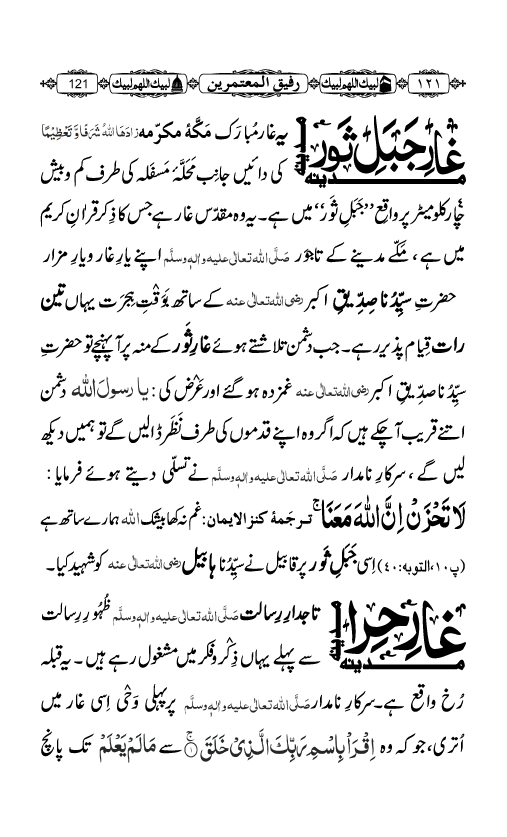 ۱۲۱ لبیک اللھم لبیک رفیق المعتمرین لبیک اللھم لبیک 121
غارِ جَبَلِ ثَور مدینہ مدینہ
یہ غار مُبارَک مَکَّۂ مکرّمہ زادَھَا اللہُ شَرَفًا وَّ تَعْظِیْمًا
کی دائیں جانِب مَحَلَّۂ مَسفَلہ کی طرف کم و بیش
چار کلومیٹر پر واقِع ”جَبَلِ ثَور“ میں ہے۔ یہ وہ مقدّس غار ہے جس کا ذِکر قرانِ کریم
میں ہے، مَکّے مدینے کے تاجْوَر صَلَّی اللہ تعالٰی علیہ واٰلہٖ وسلَّم اپنے یارِ غار و یارِ مزار
حضرتِ سیِّدُنا صِدِّیقِ اکبر رضی اللہ تعالٰی عنہ کے ساتھ بَوَقْتِ ہِجرَت یہاں تین
رات قِیام پذیر رہے۔ جب دشمن تلاشتے ہوئے غارِ ثَور کے منہ پر آپہنچے تو حضرتِ
سیِّدُنا صدِّیقِ اکبر رضی اللہ تعالٰی عنہ غمزدہ ہوگئے اور عَرْض کی: یا رسولَ اللہ دشمن
اتنے قریب آچکے ہیں کہ اگر وہ اپنے قدموں کی طرف نَظَر ڈالیں گے تو ہمیں دیکھ
لیں گے، سرکارِ نامدار صَلَّی اللہ تعالٰی علیہ واٰلہٖ وسلَّم نے تسلّی دیتے ہوئے فرمایا:
لَا تَحْزَنْ اِنَّ اللّٰهَ مَعَنَاۚ تَرجَمۂ کنزالایمان: غم نہ کھا بیشک اللہ ہمارے ساتھ ہے
(پ۱۰، التوبہ:۴۰) اِسی جَبَلِ ثَور پر قابیل نے سیِّدُنا ہابیل رضی اللہ تعالٰی عنہ کو شہید کیا۔
غارِ حِرا مدینہ مدینہ
تاجدارِ رسالت صَلَّی اللہ تعالٰی علیہ واٰلہٖ وسلَّم ظُہُورِ رسالت
سے پہلے یہاں ذِکْر و فکر میں مشغول رہے ہیں۔ یہ قبلہ
رُخ واقِع ہے۔ سرکارِ نامدار صَلَّی اللہ تعالٰی علیہ واٰلہٖ وسلَّم پر پہلی وَحْی اِسی غار میں
اُتری، جو کہ وہ اِقْرَاْ بِاسْمِ رَبِّكَ الَّذِیْ خَلَقَۚ(۱) سے مَالَمْ یَعْلَمْ تک پانچ